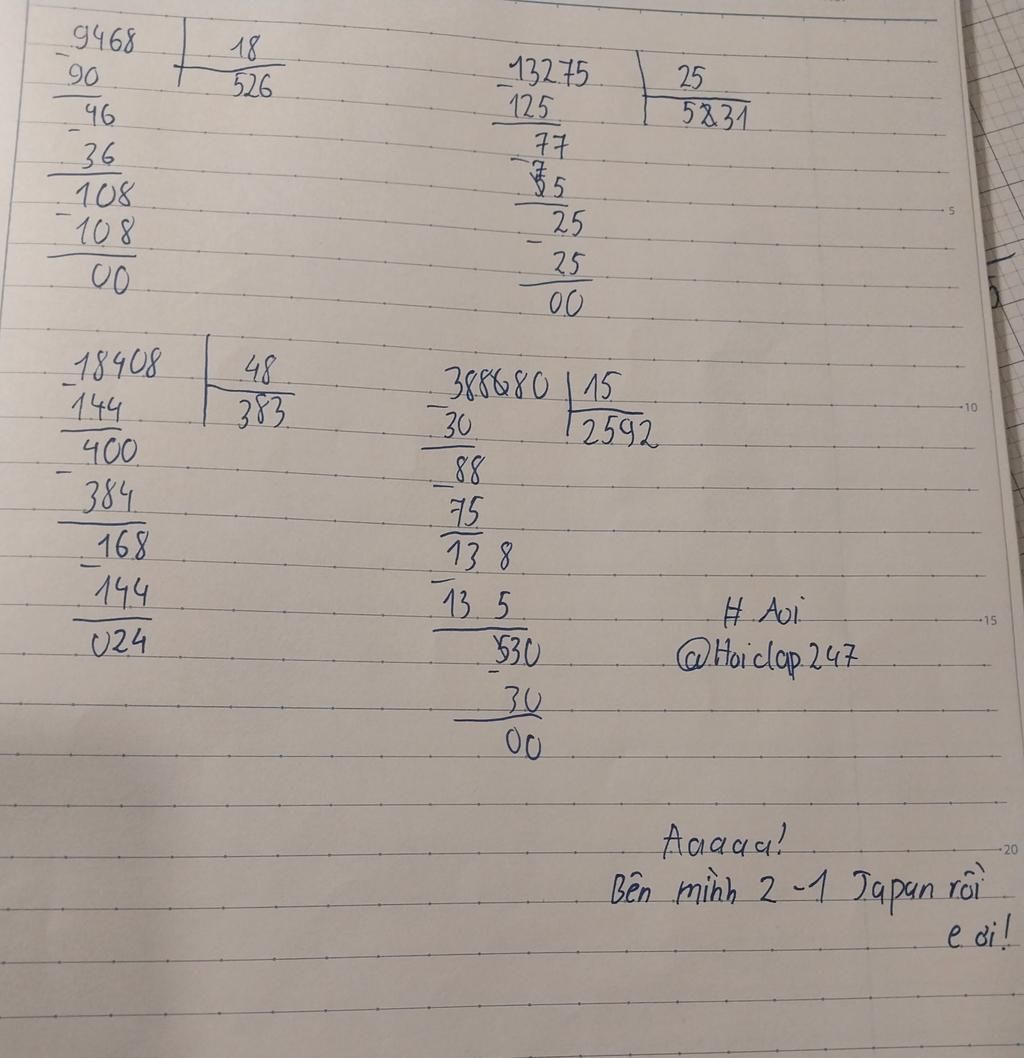 9468 18
90 526
46
36
108
108
00
13275 25
125 531
77
75
25
25
00
18408 48
144 383
400
384
168
144
024
38880 15
30 2592
88
75
13 8
13 5
30
30
00
# Aoi
@Hoidap247
Aaaaa!
Bên mình 2-1 Japan rồi
e ơi!
5
10
15
20